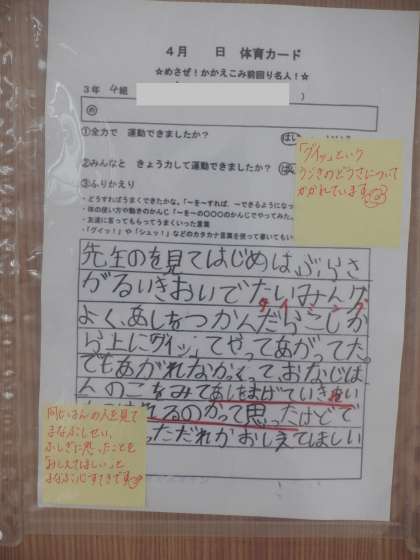 4月　　日　体育カード
☆めざせ！かかえこみ前回り名人！☆
3年 4組
め
①全力で　運動できましたか？　はい
②みんなと　きょう力して運動できましたか？　はい
③ふりかえり
・どうすればうまくできたかな。「～を～すれば、～できるようになっ
・体の使い方や動きのかんじ「～を～の〇〇〇のかんじでやってみた。
・友達に言ってもらってうまくいった言葉
・「グイッ！」や「シュッ！」などのカタカナ言葉を使って書いてもいい
「グイッ」という
うごきのどうさについて
かかれています
先生のを見てはじめは、ぶらさ
がるいきおいでたいみんぐ
タイミング
よく、あしをつかんだらこしか
ら上に「グイッ」てやってあがってた。
でもあがれなかっくておなじは
んのこをみてあしをまげていきおい
れるのかって思ったけどで
ただれかおしえてほしい
同じはんの人を見て
まなぶしせい、
ふしぎに思ったことを
「おしえてほしい」と
まなぶ心すてきです